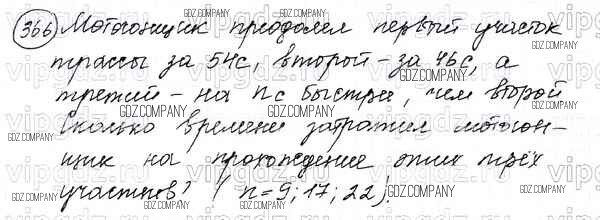 366 Мотогонщик преодолел первый участок
трассы за 54с, второй – за 46с, а
третий – на nс быстрее, чем второй
Сколько времени затратил мотогон-
щик на прохождение этих трёх
участков? (n=9; 17; 22).